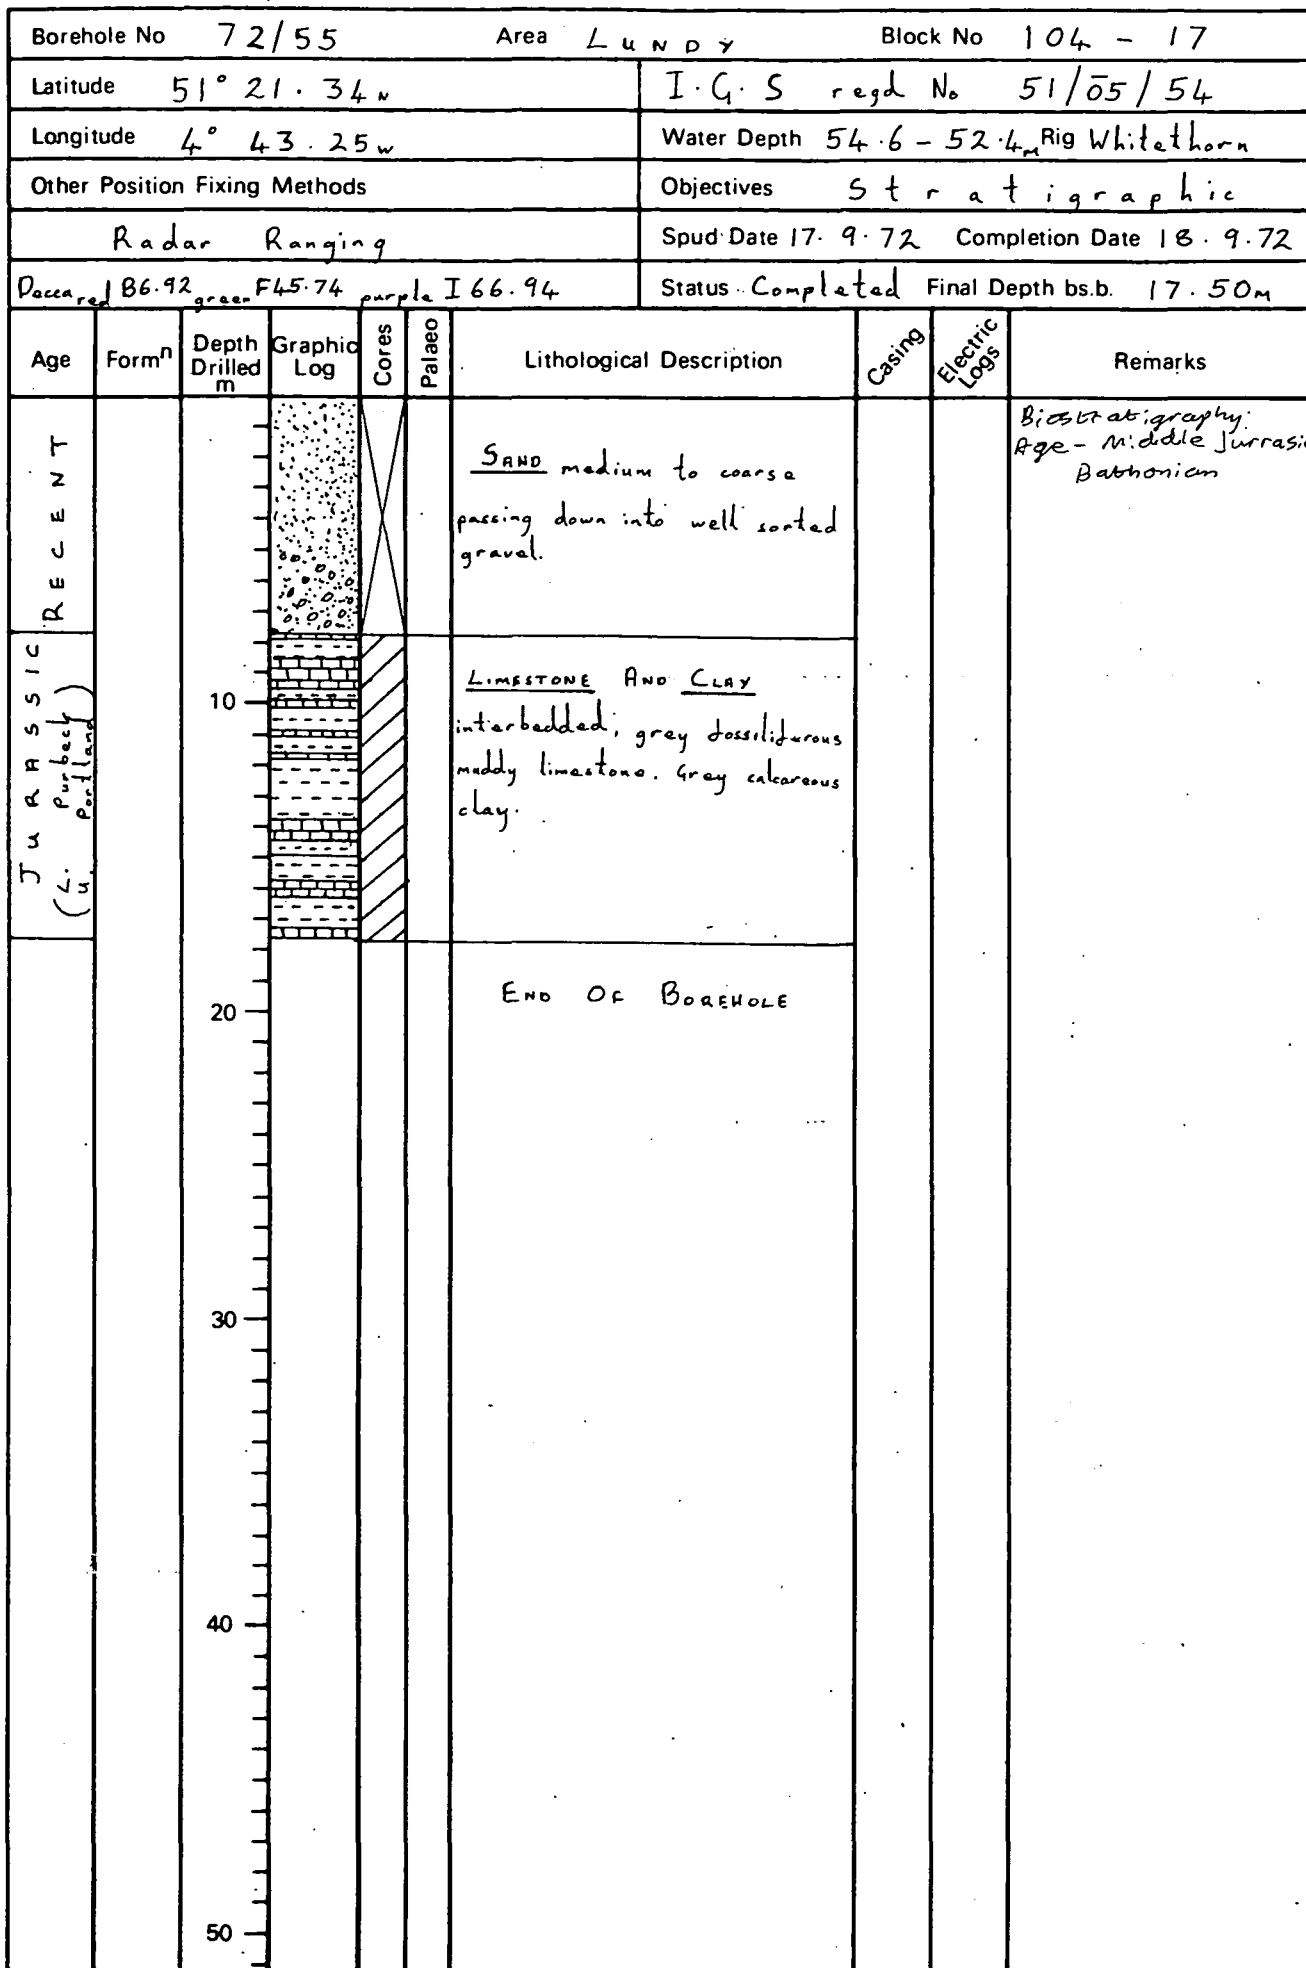 Borehole No 72/55 Area LUNDY Block No 104 - 17
Latitude 51° 21.34 N I.G.S regd No 51/05/54
Longitude 4° 43.25 W Water Depth 54.6 - 52.4 M Rig Whitethorn
Other Position Fixing Methods Objectives Stratigraphic
Radar Ranging Spud Date 17.9.72 Completion Date 18.9.72
Decca red B6.92 green F45.74 purple I 66.94 Status Completed Final Depth bs.b. 17.50M
Age Formn Depth Drilled m Graphic Log Cores Palaeo Lithological Description Casing Electric Logs Remarks
RECENT
SAND medium to coarse
passing down into well sorted
gravel.
Biostratigraphy:
Age - Middle Jurrasic
Bathonian
JURASSIC
(L. Purbeck)
U. Portland
LIMESTONE AND CLAY
interbedded, grey fossiliferous
muddy limestone. Grey calcareous
clay.
10
END OF BOREHOLE
20
30
40
50